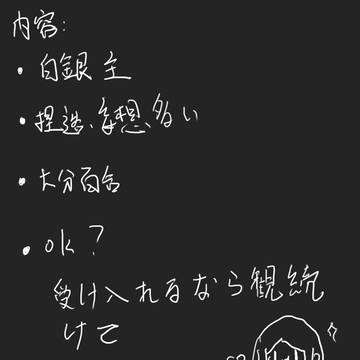 内容:
・白銀主
・捏造、妄想、多い
・大分百合
・ok?
受け入れるなら観続
けて